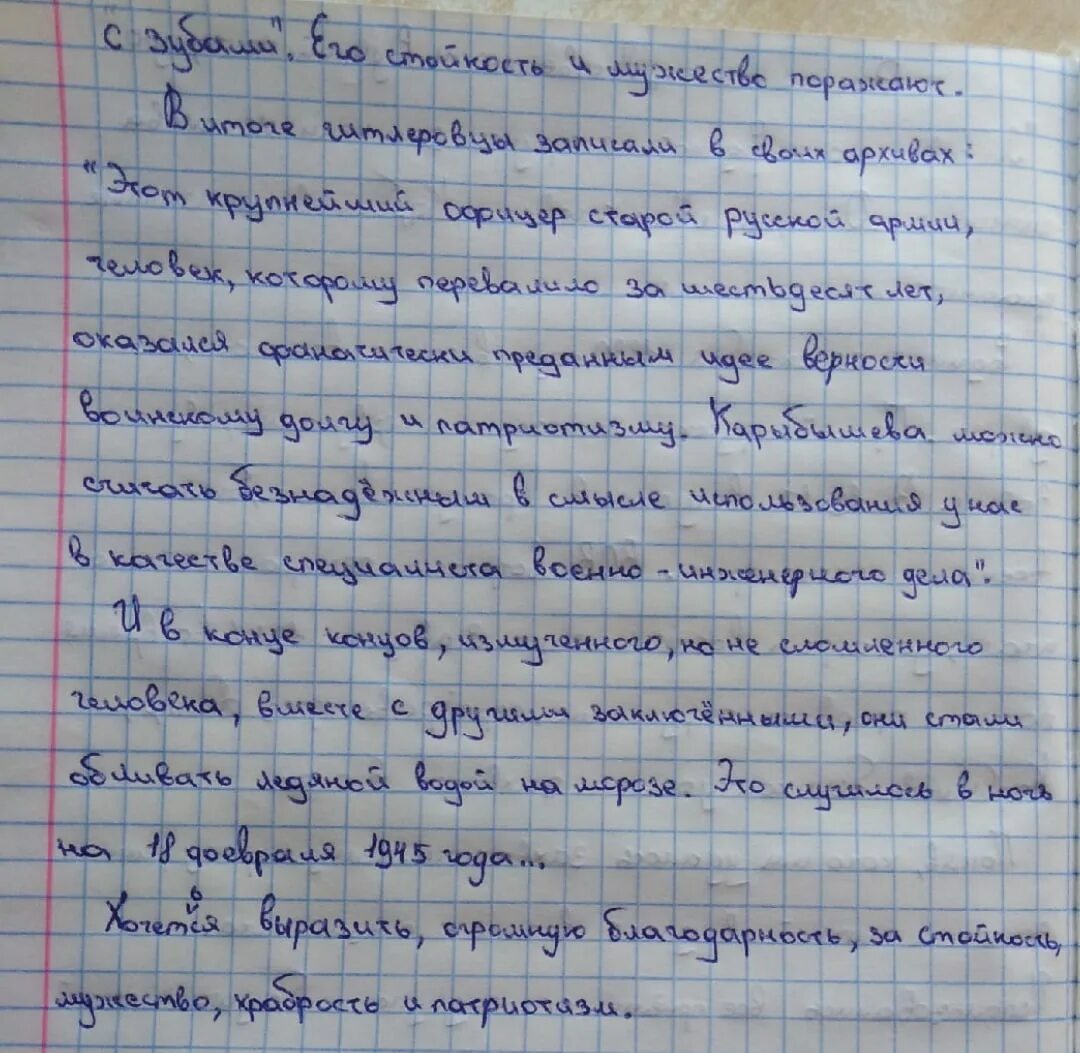 с зубами". Его стойкость и мужество поражают.
В итоге гитлеровцы записали в своих архивах:
"Этот крупнейший офицер старой русской армии,
человек, которому перевалило за шестьдесят лет,
оказался фанатически преданным идее верности
воинскому долгу и патриотизму. Карыбышева можно
считать безнадёжным в смысле использования у нас
в качестве специалиста военно-инженерного дела".
И в конце концов, измученного, но не сломленного
человека, вместе с другими заключёнными, они стали
обливать ледяной водой на морозе. Это случилось в ночь
на 18 февраля 1945 года...
Хочется выразить, огромную благодарность, за стойкость,
мужество, храбрость и патриотизм.